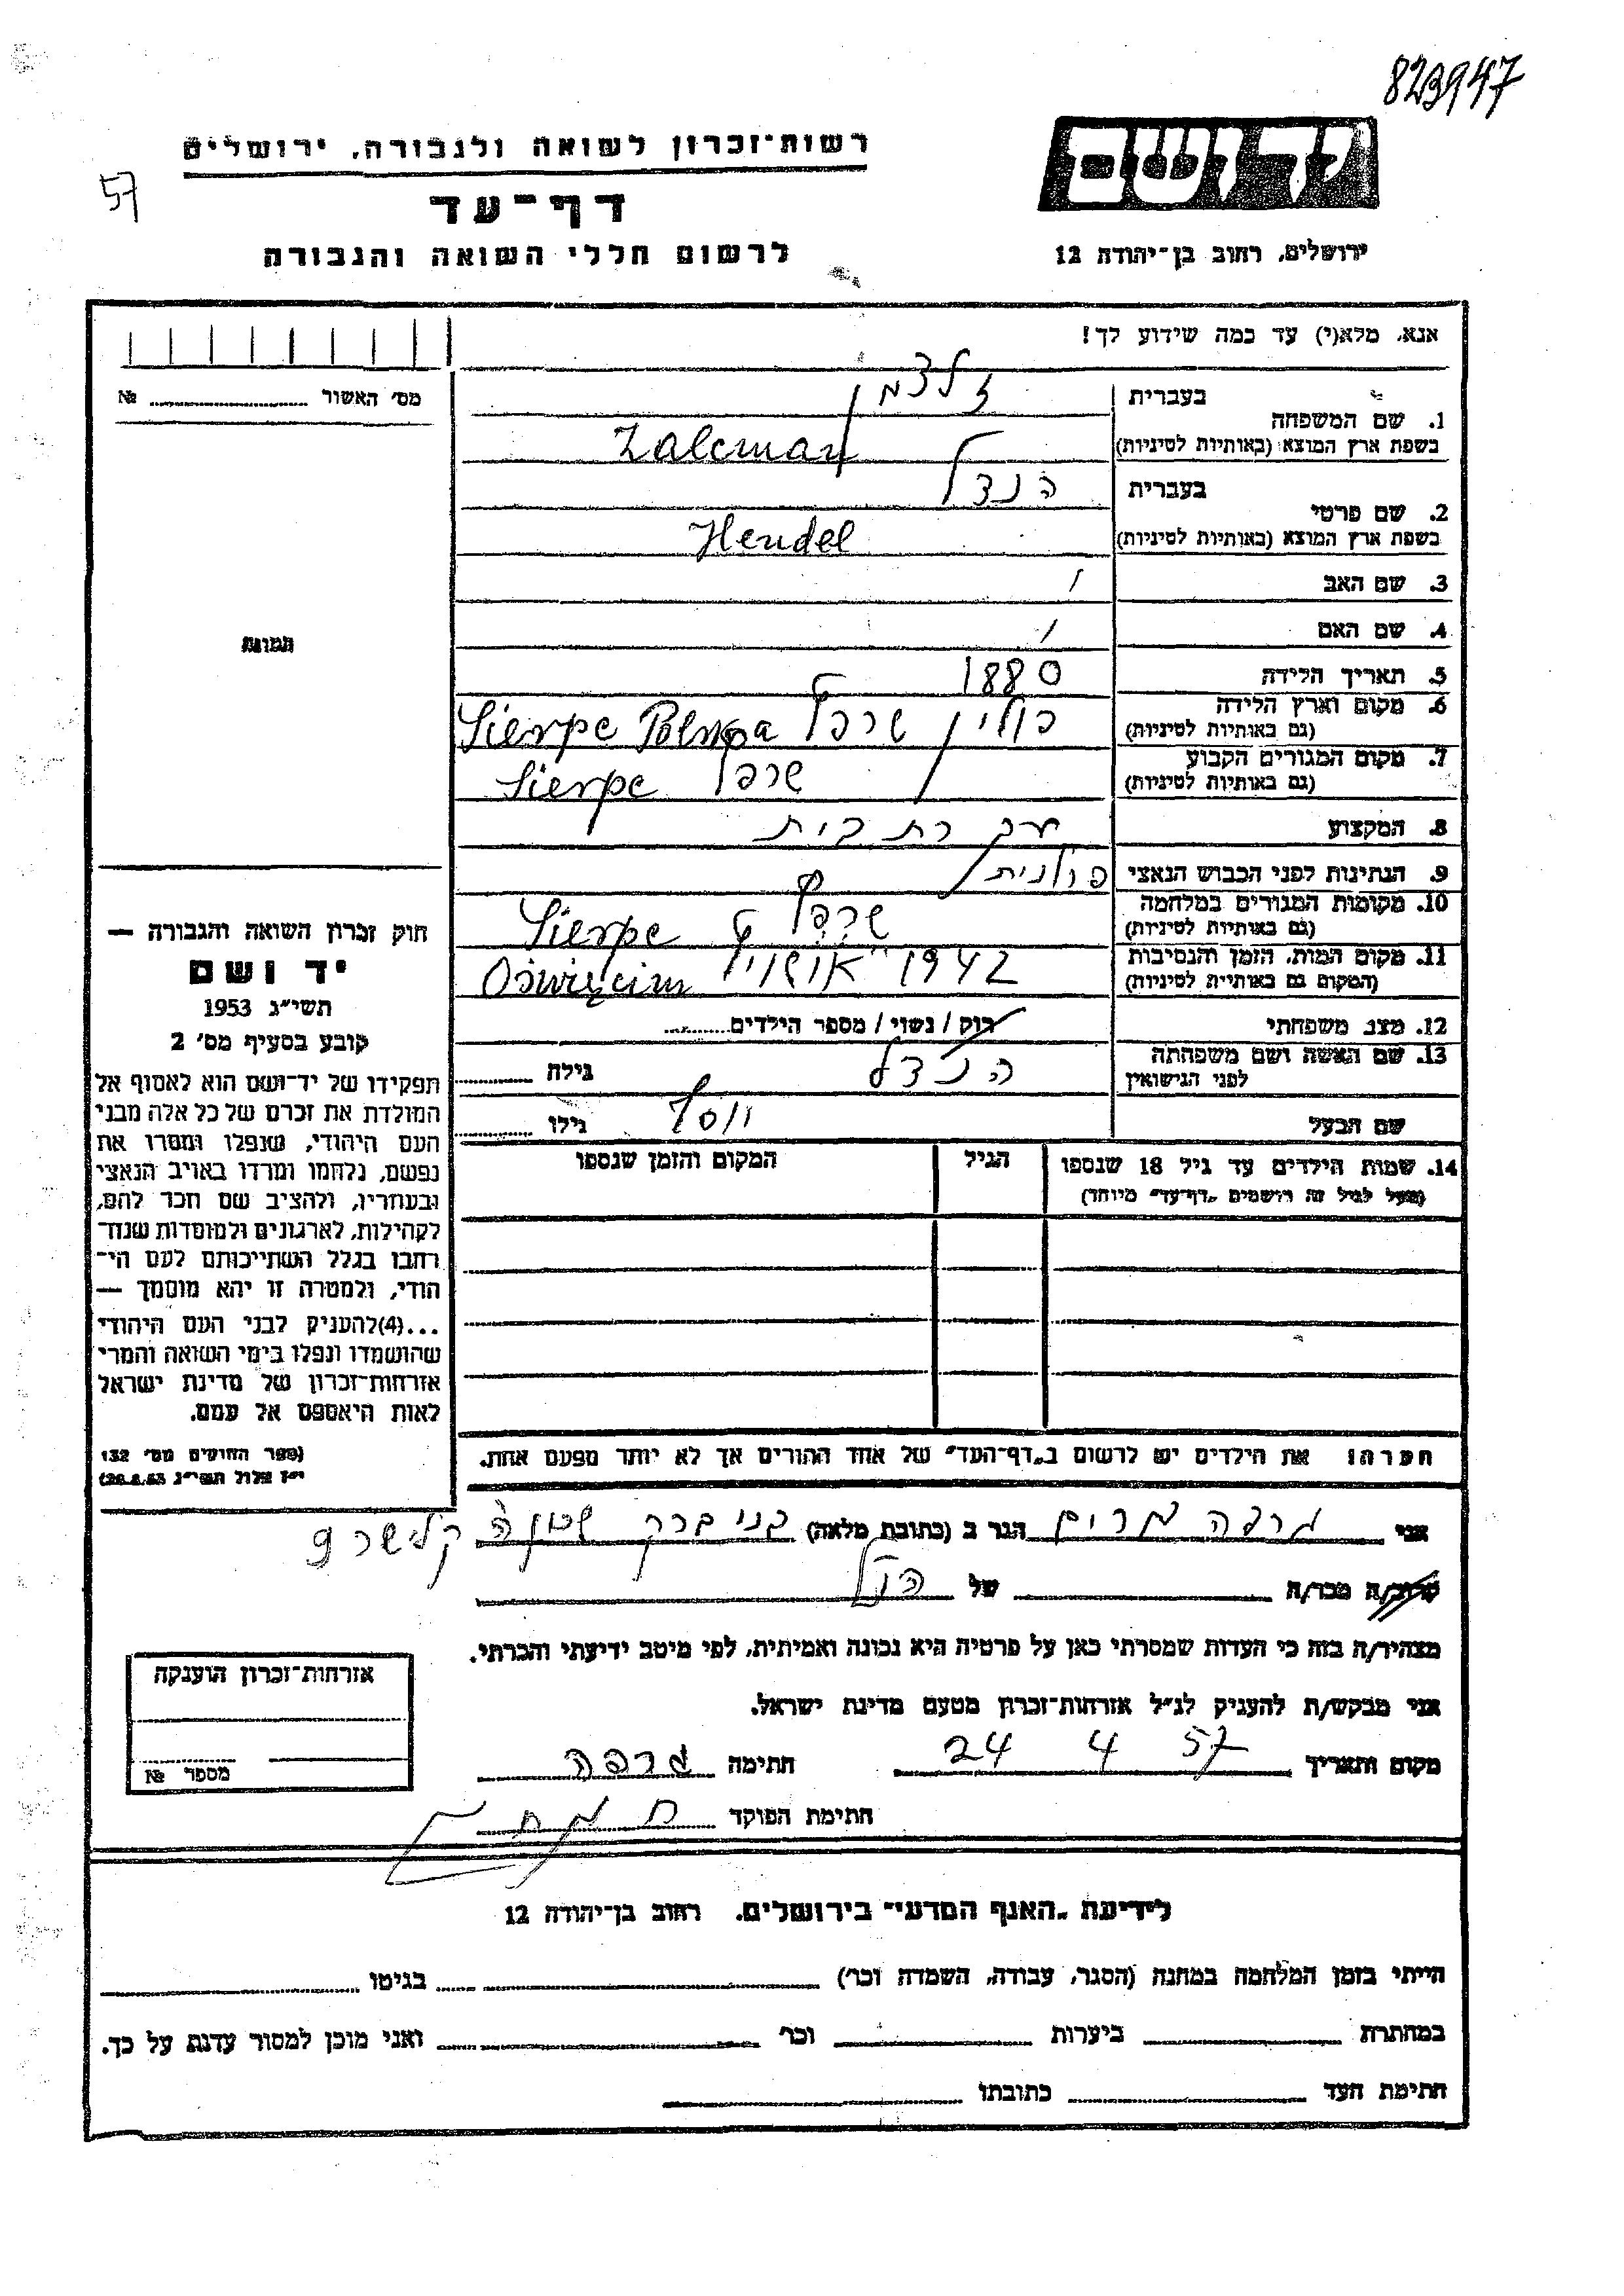 823947
יד ושם
רשות-זכרון לשואה ולגבורה, ירושלים
57
דף-עד
ירושלים, רחוב בן-יהודה 12
לרשום חללי השואה והגבורה
אנא, מלא(י) עד כמה שידוע לך!
מס' האשור № 
בעברית זלצמן
1. שם המשפחה
בשפת ארץ המוצא (באותיות לטיניות) Zalcman
בעברית הנדל
2. שם פרטי
בשפת ארץ המוצא (באותיות לטיניות) Hendel
3. שם האב /
4. שם האם /
תמונה
5. תאריך הלידה 1880
6. מקום וארץ הלידה (גם באותיות לטיניות) פולין שרפץ Sierpc Polska
7. מקום המגורים הקבוע (גם באותיות לטיניות) שרפץ Sierpc
8. המקצוע עקרת בית
9. הנתינות לפני הכבוש הנאצי פולנית
10. מקומות המגורים במלחמה (גם באותיות לטיניות) שרפץ Sierpc
11. מקום המות, הזמן והנסיבות (המקום גם באותיות לטיניות) 1942 Oświęcim
12. מצב משפחתי רוק/נשוי/מספר הילדים
13. שם האשה ושם משפחתה לפני הנישואין הנדל גילה
שם הבעל יוסף גילו
14. שמות הילדים עד גיל 18 שנספו הגיל המקום והזמן שנספו
(מעל לגיל זה רושמים "דף-עד" מיוחד)
חוק זכרון השואה והגבורה —
יד ושם
תשי"ג 1953
קובע בסעיף מס' 2
תפקידו של יד-ושם הוא לאסוף אל
המולדת את זכרם של כל אלה מבני
העם היהודי, שנפלו ומסרו את
נפשם, נלחמו ומרדו באויב הנאצי
ובעוזריו, ולהציב שם וזכר להם,
לקהילות, לארגונים ולמוסדות שנח־
רבו בגלל השתייכותם לעם הי־
הודי, ולמטרה זו יהא מוסמך —
...(4)להעניק לבני העם היהודי
שהושמדו ונפלו בימי השואה והמרי
אזרחות-זכרון של מדינת ישראל
לאות היאספם אל עמם.
(ספר החוקים מס' 132
י"ז אלול תשי"ג 28.8.53)
הערה: את הילדים יש לרשום ב"דף-העד" של אחד ההורים אך לא יותר מפעם אחת.
אני גרפה מרים הגר ב (כתובת מלאה) בני ברק שכון ה קלישר 9
קרוב/ה מכר/ה של הנ"ל
מצהיר/ה בזה כי העדות שמסרתי כאן על פרטיה היא נכונה ואמיתית, לפי מיטב ידיעתי והכרתי.
אני מבקש/ת להעניק לנ"ל אזרחות-זכרון מטעם מדינת ישראל.
מקום ותאריך 24 4 57 חתימה גרפה
חתימת הפוקד
אזרחות-זכרון הוענקה
מספר №
לידיעת "האגף המדעי" בירושלים. רחוב בן-יהודה 12
הייתי בזמן המלחמה במחנה (הסגר, עבודה, השמדה וכו') בגיטו
במחתרת ביערות וכו' ואני מוכן למסור עדות על כך.
חתימת העד כתובתו